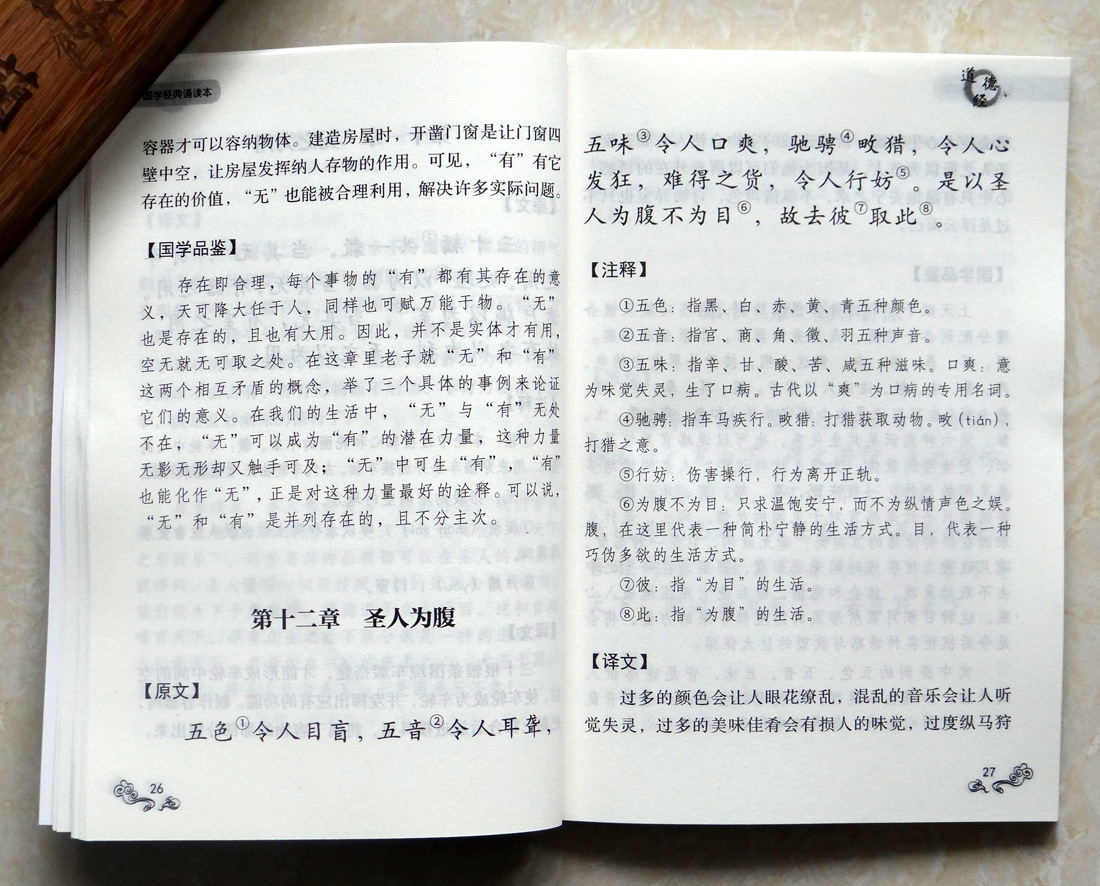 国学经典诵读本
容器才可以容纳物体。建造房屋时，开凿门窗是让门窗四
壁中空，让房屋发挥纳人存物的作用。可见，“有”有它
存在的价值，“无”也能被合理利用，解决许多实际问题。
【国学品鉴】
存在即合理，每个事物的“有”都有其存在的意
义，天可降大任于人，同样也可赋万能于物。“无”
也是存在的，且也有大用。因此，并不是实体才有用，
空无就无可取之处。在这章里老子就“无”和“有”
这两个相互矛盾的概念，举了三个具体的事例来论证
它们的意义。在我们的生活中，“无”与“有”无处
不在，“无”可以成为“有”的潜在力量，这种力量
无影无形却又触手可及；“无”中可生“有”，“有”
也能化作“无”，正是对这种力量最好的诠释。可以说，
“无”和“有”是并列存在的，且不分主次。
第十二章　圣人为腹
【原文】
五色①令人目盲，五音②令人耳聋，
26
道德经
五味③令人口爽，驰骋④畋猎，令人心
发狂，难得之货，令人行妨⑤。是以圣
人为腹不为目⑥，故去彼⑦取此⑧。
【注释】
①五色：指黑、白、赤、黄、青五种颜色。
②五音：指宫、商、角、徵、羽五种声音。
③五味：指辛、甘、酸、苦、咸五种滋味。口爽：意
为味觉失灵，生了口病。古代以“爽”为口病的专用名词。
④驰骋：指车马疾行。畋猎：打猎获取动物。畋(tián)，
打猎之意。
⑤行妨：伤害操行，行为离开正轨。
⑥为腹不为目：只求温饱安宁，而不为纵情声色之娱。
腹，在这里代表一种简朴宁静的生活方式。目，代表一种
巧伪多欲的生活方式。
⑦彼：指“为目”的生活。
⑧此：指“为腹”的生活。
【译文】
过多的颜色会让人眼花缭乱，混乱的音乐会让人听
觉失灵，过多的美味佳肴会有损人的味觉，过度纵马狩
27